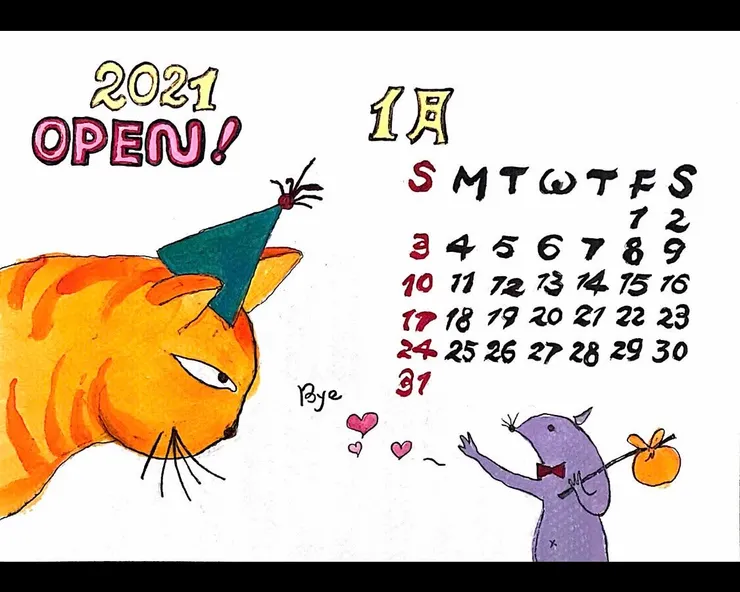 2021
OPEN!
1月
S M T W T F S
1 2
3 4 5 6 7 8 9
10 11 12 13 14 15 16
17 18 19 20 21 22 23
24 25 26 27 28 29 30
31
Bye